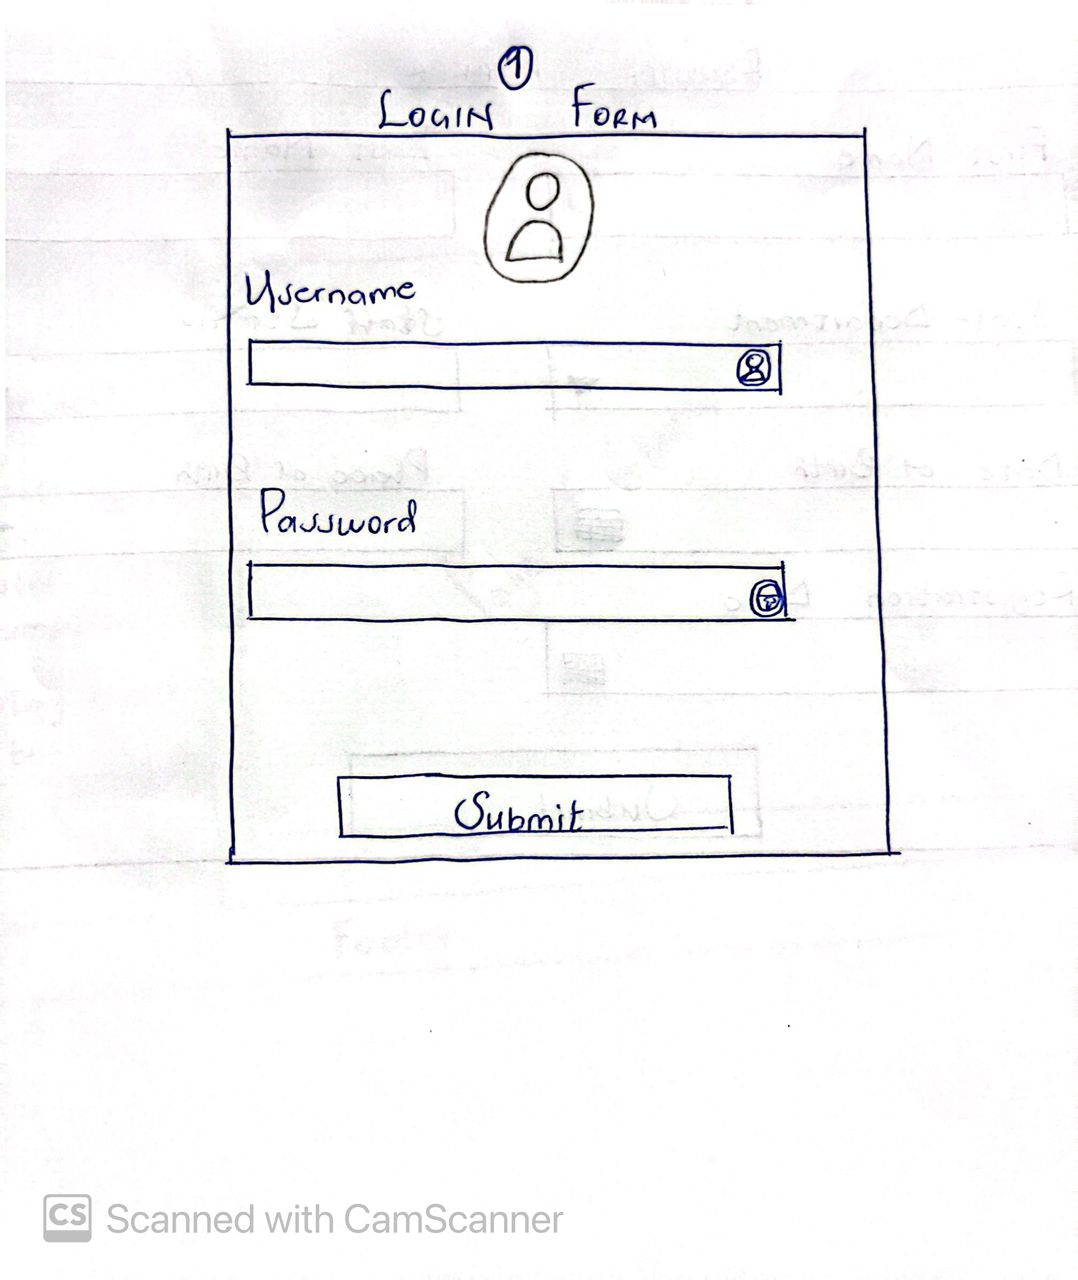 1
LOGIN FORM
Username
Password
Submit
CS Scanned with CamScanner